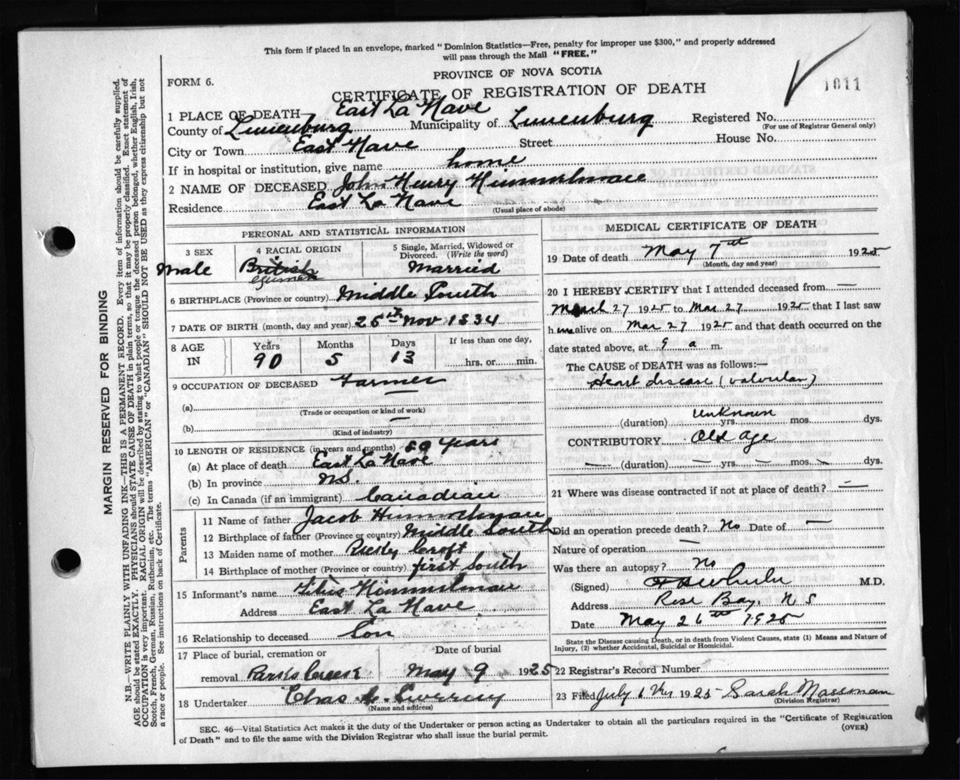 This form if placed in an envelope, marked "Dominion Statistics—Free, penalty for improper use $300," and properly addressed
will pass through the Mail "FREE."
PROVINCE OF NOVA SCOTIA
FORM 6.
CERTIFICATE OF REGISTRATION OF DEATH
1011
1 PLACE OF DEATH— East La Have
County of Lunenburg Municipality of Lunenburg Registered No.
(For use of Registrar General only)
City or Town East Have Street House No.
If in hospital or institution, give name home
2 NAME OF DECEASED John Henry Himmelman
Residence East La Have
(Usual place of abode)
PERSONAL AND STATISTICAL INFORMATION
3 SEX 4 RACIAL ORIGIN 5 Single, Married, Widowed or
Divorced. (Write the word)
Male British Married
German
6 BIRTHPLACE (Province or country) Middle South
7 DATE OF BIRTH (month, day and year) 25th Nov 1834
8 AGE Years Months Days If less than one day,
IN 90 5 13 hrs. or min.
9 OCCUPATION OF DECEASED Farmer
(a)
(Trade or occupation or kind of work)
(b) —
(Kind of industry)
10 LENGTH OF RESIDENCE (in years and months) Years
(a) At place of death East La Have
(b) In province N.S.
(c) In Canada (if an immigrant) Canadian
Parents
11 Name of father Jacob Himmelman
12 Birthplace of father (Province or country) Middle South
13 Maiden name of mother Croft
14 Birthplace of mother (Province or country) first South
15 Informant's name Titus Himmelman
Address East La Have
16 Relationship to deceased Son
17 Place of burial, cremation or Date of burial
removal Parks Creek May 9 1925
18 Undertaker Chas
(Name and address)
MEDICAL CERTIFICATE OF DEATH
19 Date of death May 7th 1925
(Month, day and year)
20 I HEREBY CERTIFY that I attended deceased from —
March 27 1925 to Mar 27 1925 that I last saw
him alive on Mar 27 1925 and that death occurred on the
date stated above, at 9 a m.
The CAUSE of DEATH was as follows:—
Heart disease (valvular)
unknown
(duration) yrs. mos. dys.
CONTRIBUTORY Old Age
— (duration) — yrs. — mos. — dys.
21 Where was disease contracted if not at place of death? —
Did an operation precede death? No Date of —
Nature of operation —
Was there an autopsy? No
(Signed) M.D.
Address Rose Bay, N S
Date May 26th 1925
State the Disease causing Death, or in death from Violent Causes, state (1) Means and Nature of
Injury, (2) whether Accidental, Suicidal or Homicidal.
22 Registrar's Record Number
23 Filed July 1925 Sarah Mossman
(Division Registrar)
SEC. 46—Vital Statistics Act makes it the duty of the Undertaker or person acting as Undertaker to obtain all the particulars required in the "Certificate of Registration
of Death" and to file the same with the Division Registrar who shall issue the burial permit.
(OVER)
MARGIN RESERVED FOR BINDING
N.B.—WRITE PLAINLY WITH UNFADING INK—THIS IS A PERMANENT RECORD. Every item of information should be carefully supplied.
AGE should be stated EXACTLY. PHYSICIANS should STATE CAUSE OF DEATH in plain terms, so that it may be properly classified. Exact statement of
OCCUPATION is very important. RACIAL ORIGIN will be described by stating to what people or tongue the deceased person belonged, whether English, Irish,
Scotch, French, German, Russian, Ruthenian, etc. The terms "AMERICAN" or "CANADIAN" SHOULD NOT BE USED as they express citizenship but not
a race or people. See instructions on back of Certificate.